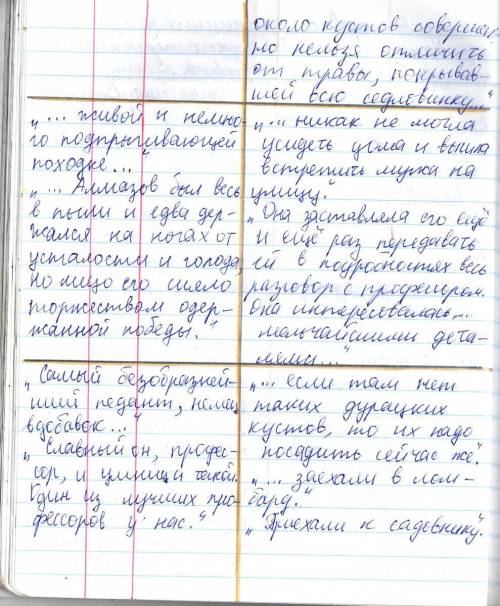 около кустов совершен
но нельзя отличить
от травы, покрывав-
шей всю седловинку..."
„... живой и немно-
го подпрыгивающей
походке..."
„... Алмазов был весь
в пыли и едва дер-
жался на ногах от
усталости и голода,
но лицо его сияло
торжеством одер-
жанной победы."
„... никак не могла
усидеть дома и вышла
встретить мужа на
улицу."
„Она заставляла его ещё
и ещё раз передавать
ей в подробностях весь
разговор с профессором.
Она интересовалась...
мельчайшими дета-
лями..."
„Самый безобразней-
ший педант, немец
вдобавок..."
„Славный он, профес-
сор, и умница такой.
Один из лучших про-
фессоров у нас."
„... если там нет
таких дурацких
кустов, то их надо
посадить сейчас же."
„... заехали в лом-
бард."
„Приехали к садовнику".